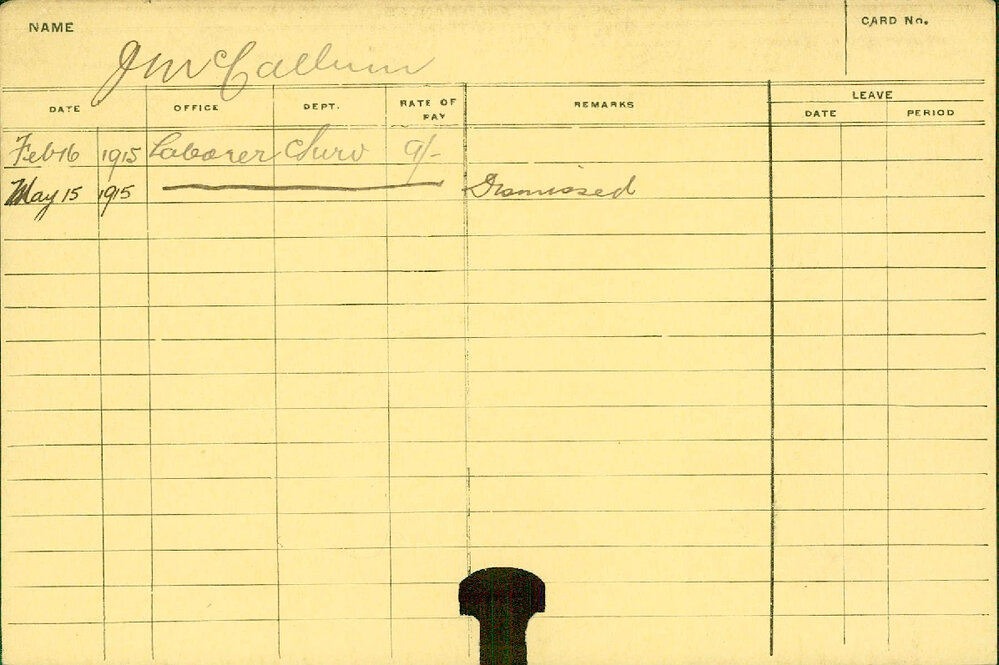 NAME
CARD No.
J McCallum
DATE OFFICE DEPT. RATE OF PAY REMARKS LEAVE
DATE PERIOD
Feb 16 1915 Laborer 9/-
May 15 1915 Dismissed